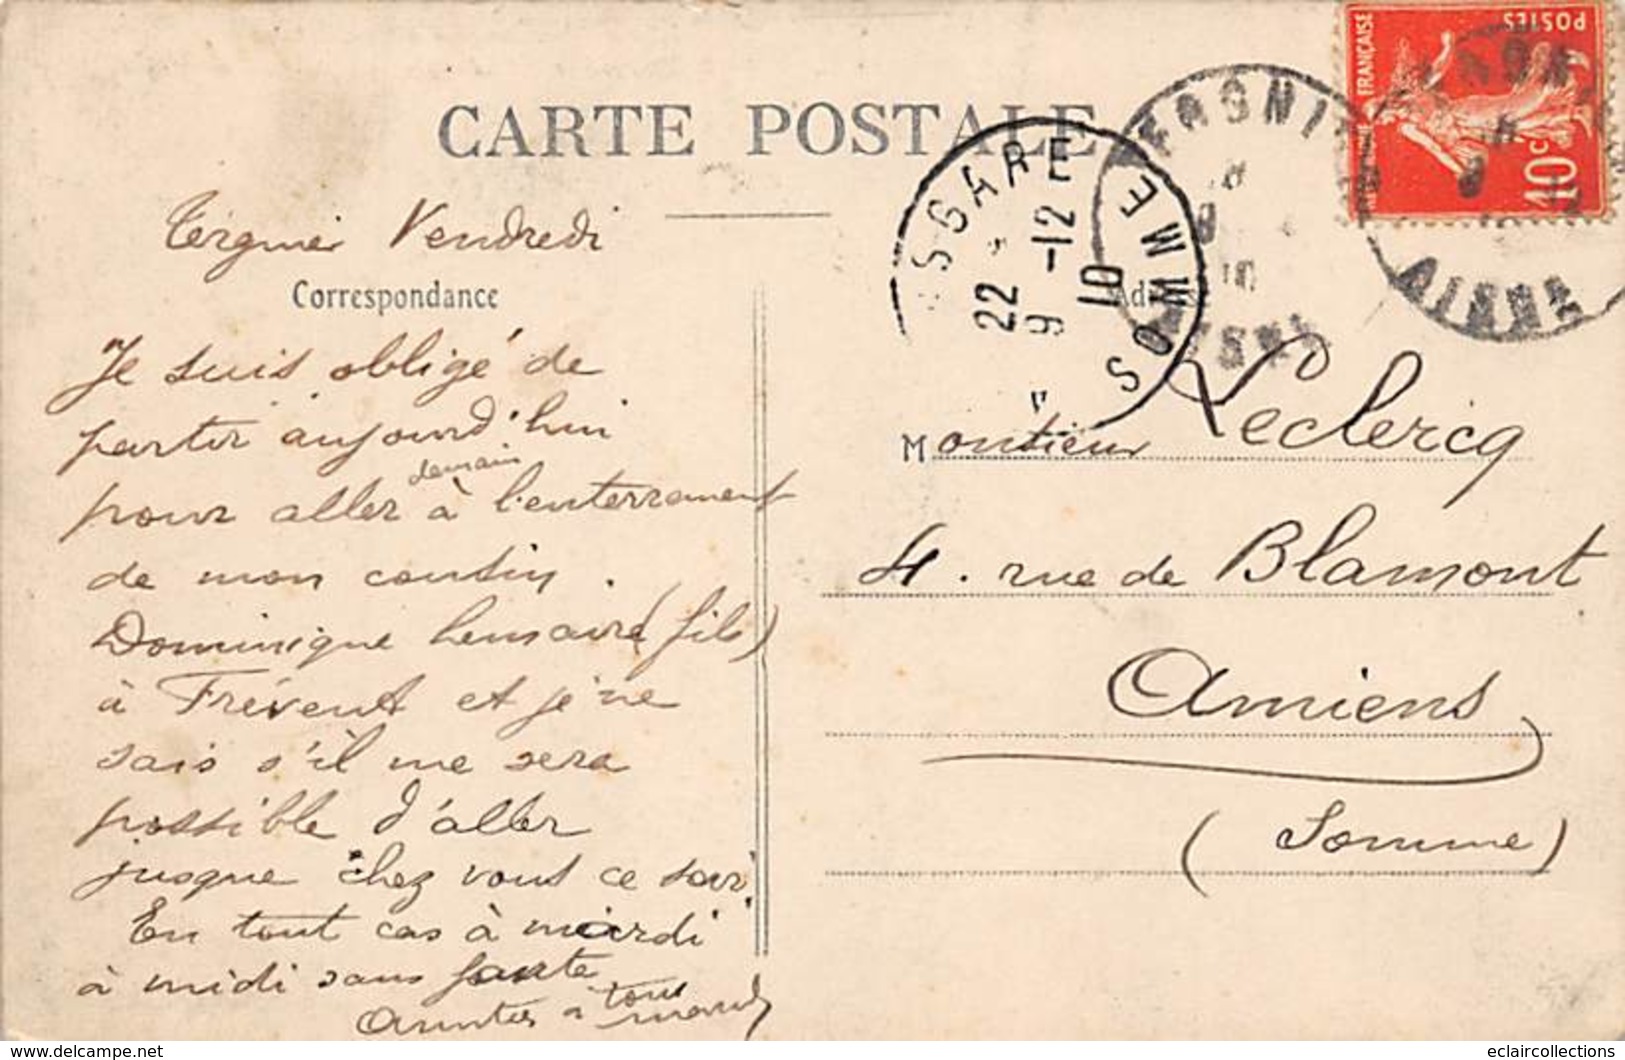 CARTE POSTALE
Tergnier Vendredi
Correspondance
Je suis obligé de
partir aujourd'hui
demain
pour aller à l'enterrement
de mon cousin
Dominique (fils)
à Frévent et je ne
sais s'il me sera
possible d'aller
jusque chez vous ce soir.
En tout cas à mardi
à midi sans faute
Amitiés à tous
Monsieur Leclercq
4. rue de Blamont
Amiens
(Somme)
GARE
SOMME
22 9 -12
10
AISNE
FRANÇAISE
POSTES
10 c
eclaircollections
www.delcampe.net